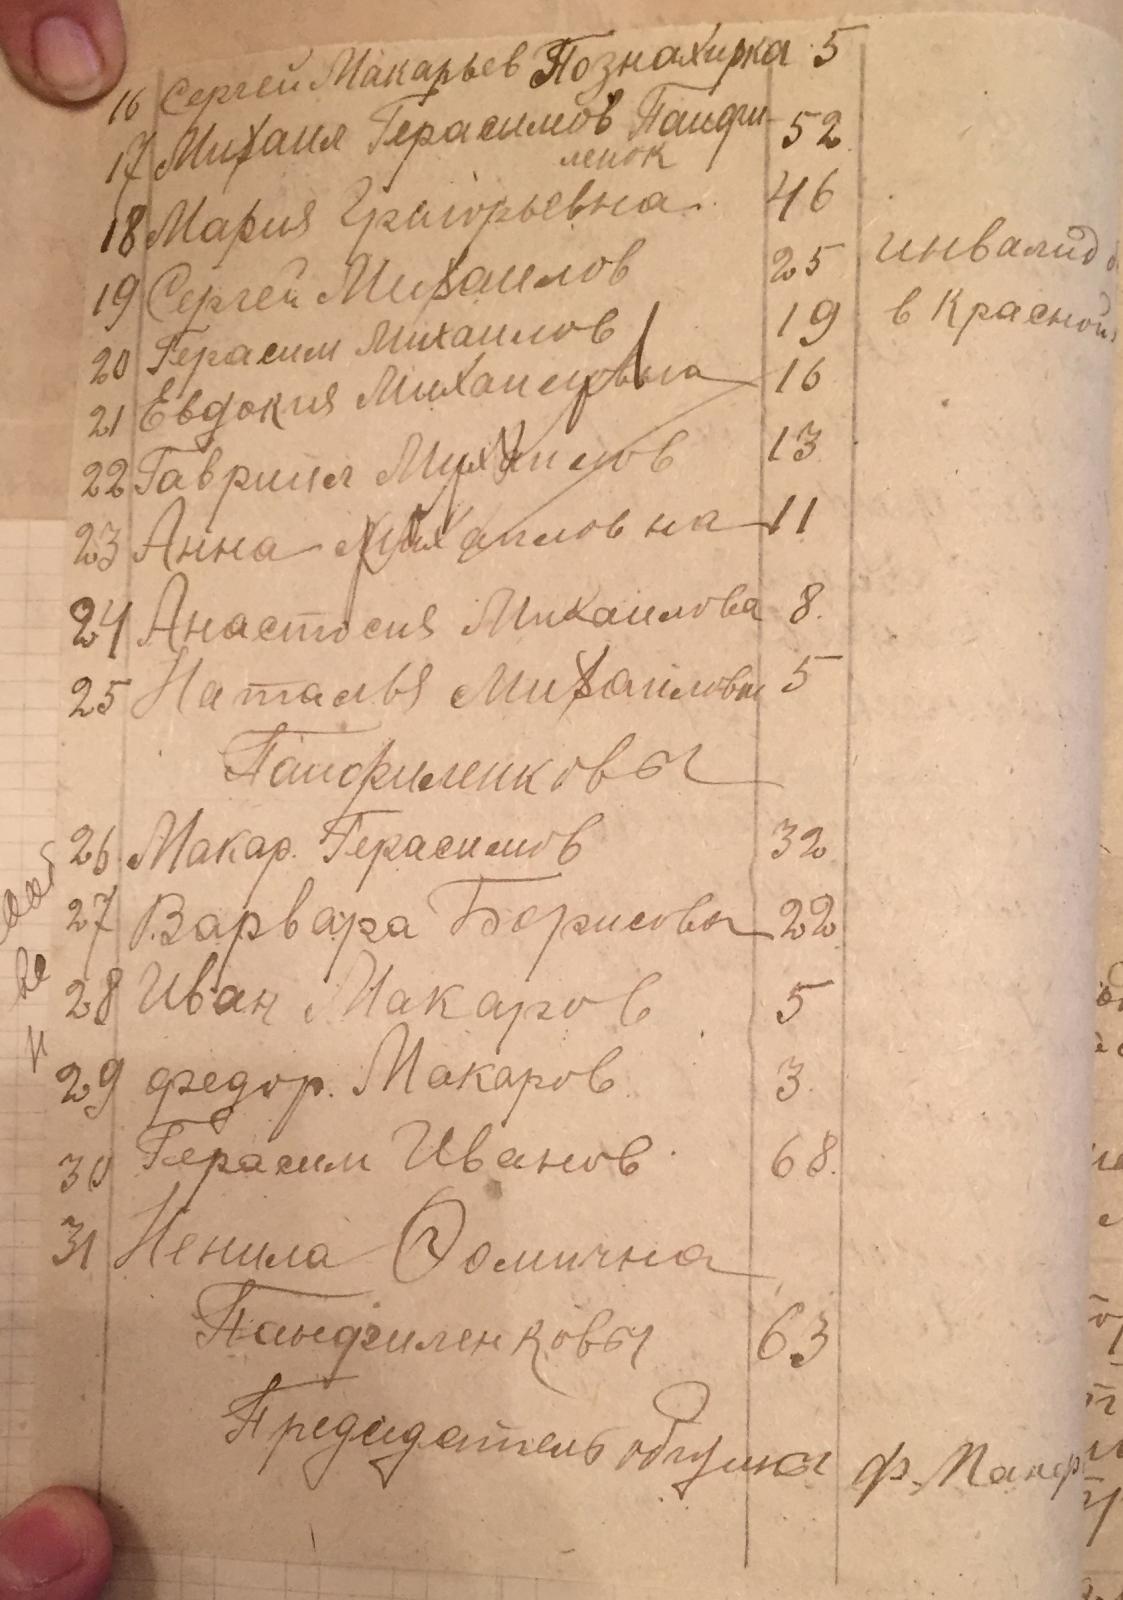 16 Сергей Макарьев Познахирка 5
17 Михаил Герасимов Панфи- 52
ленок
18 Мария Григорьевна 46
19 Сергей Михаилов 25 инвалид
20 Герасим Михаилов 19 в Красной
21 Евдокия Михаиловна 16
22 Гавриил Михаилов 13
23 Анна Михаиловна 11
24 Анастосия Михаилова 8.
25 Наталья Михаиловна 5
Панфиленковы
26 Макар. Герасимов 32
27 Варвара Борисовы 22
28 Иван Макаров 5
29 федор. Макаров 3.
30 Герасим Иванов 68.
31 Ненила Фомична
Панфиленковы 63
Председатель общины ф. Панф